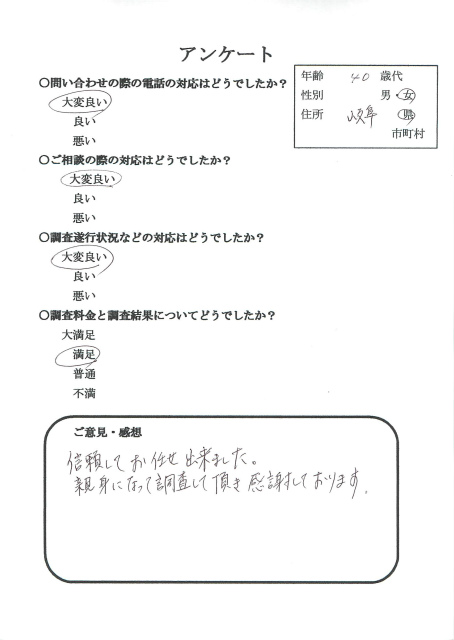 アンケート
年齢 40 歳代
性別 男・女
住所 岐阜 県
市町村
○問い合わせの際の電話の対応はどうでしたか？
大変良い
良い
悪い
○ご相談の際の対応はどうでしたか？
大変良い
良い
悪い
○調査遂行状況などの対応はどうでしたか？
大変良い
良い
悪い
○調査料金と調査結果についてどうでしたか？
大満足
満足
普通
不満
ご意見・感想
信頼してお任せ出来ました。
親身になって調査して頂き感謝しております。